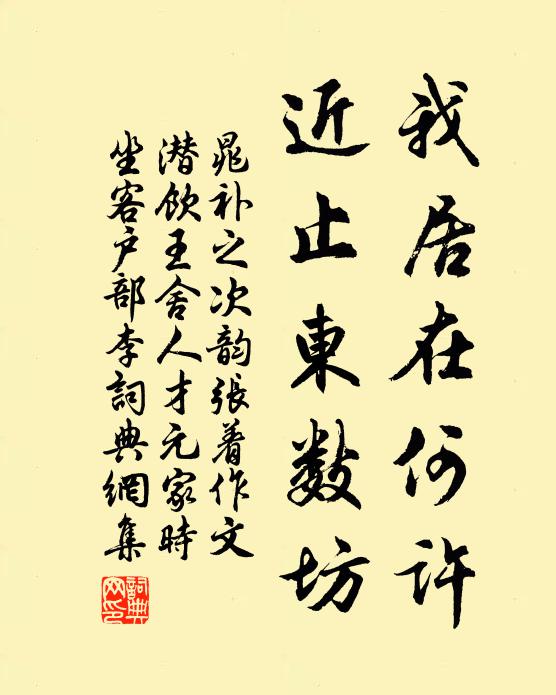 我居在何許
近止東數坊
晁补之次韵張著作文
潜飲王舍人才元家時
坐客户部李詞典網集
詞典网印